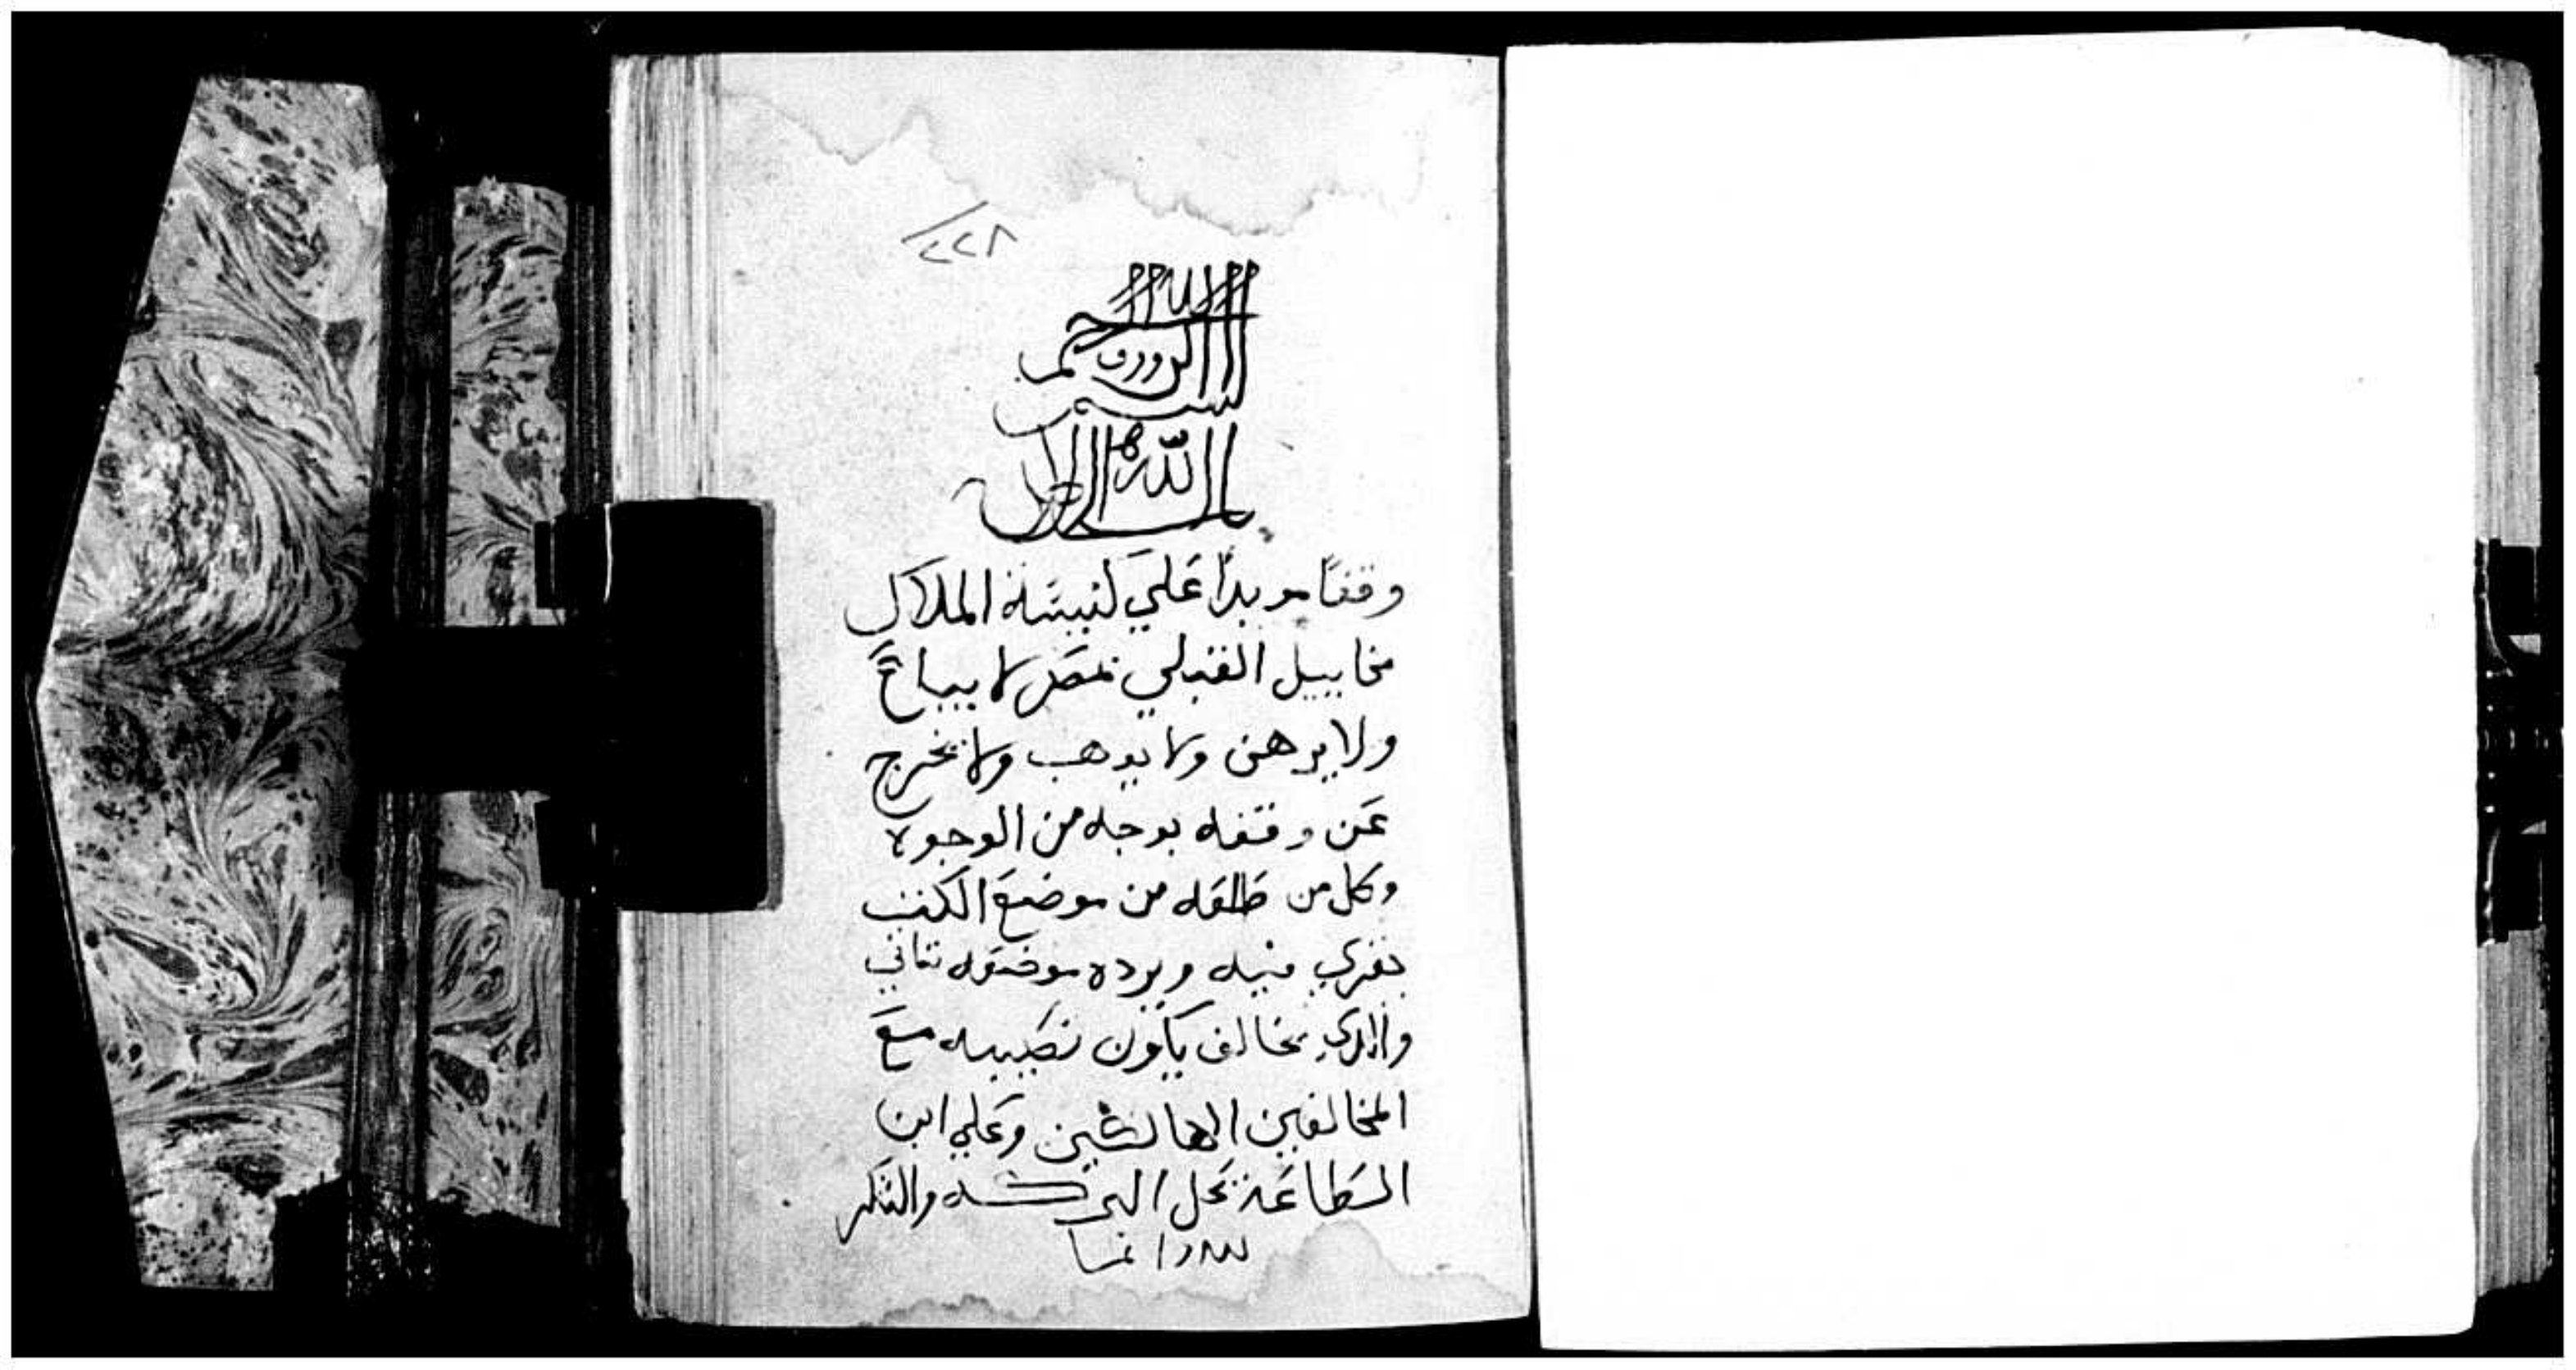 ٢٢٨
الرووف
بسم
الله
وقفًا موبدًا علي كنيسة الملاك
مخاييل القبلي بمصر لا يباع
ولا يرهن ولا يوهب ولا يخرج
عن وقفه بوجه من الوجوه
وكل من طلعه من موضع الكتب
يقري فيه ويرده موضعه تاني
والدي يخالف يكون نصيبه مع
المخالفين الهالكين وعلي ابن
الطاعة تحل البركه والشكر
لله دايما